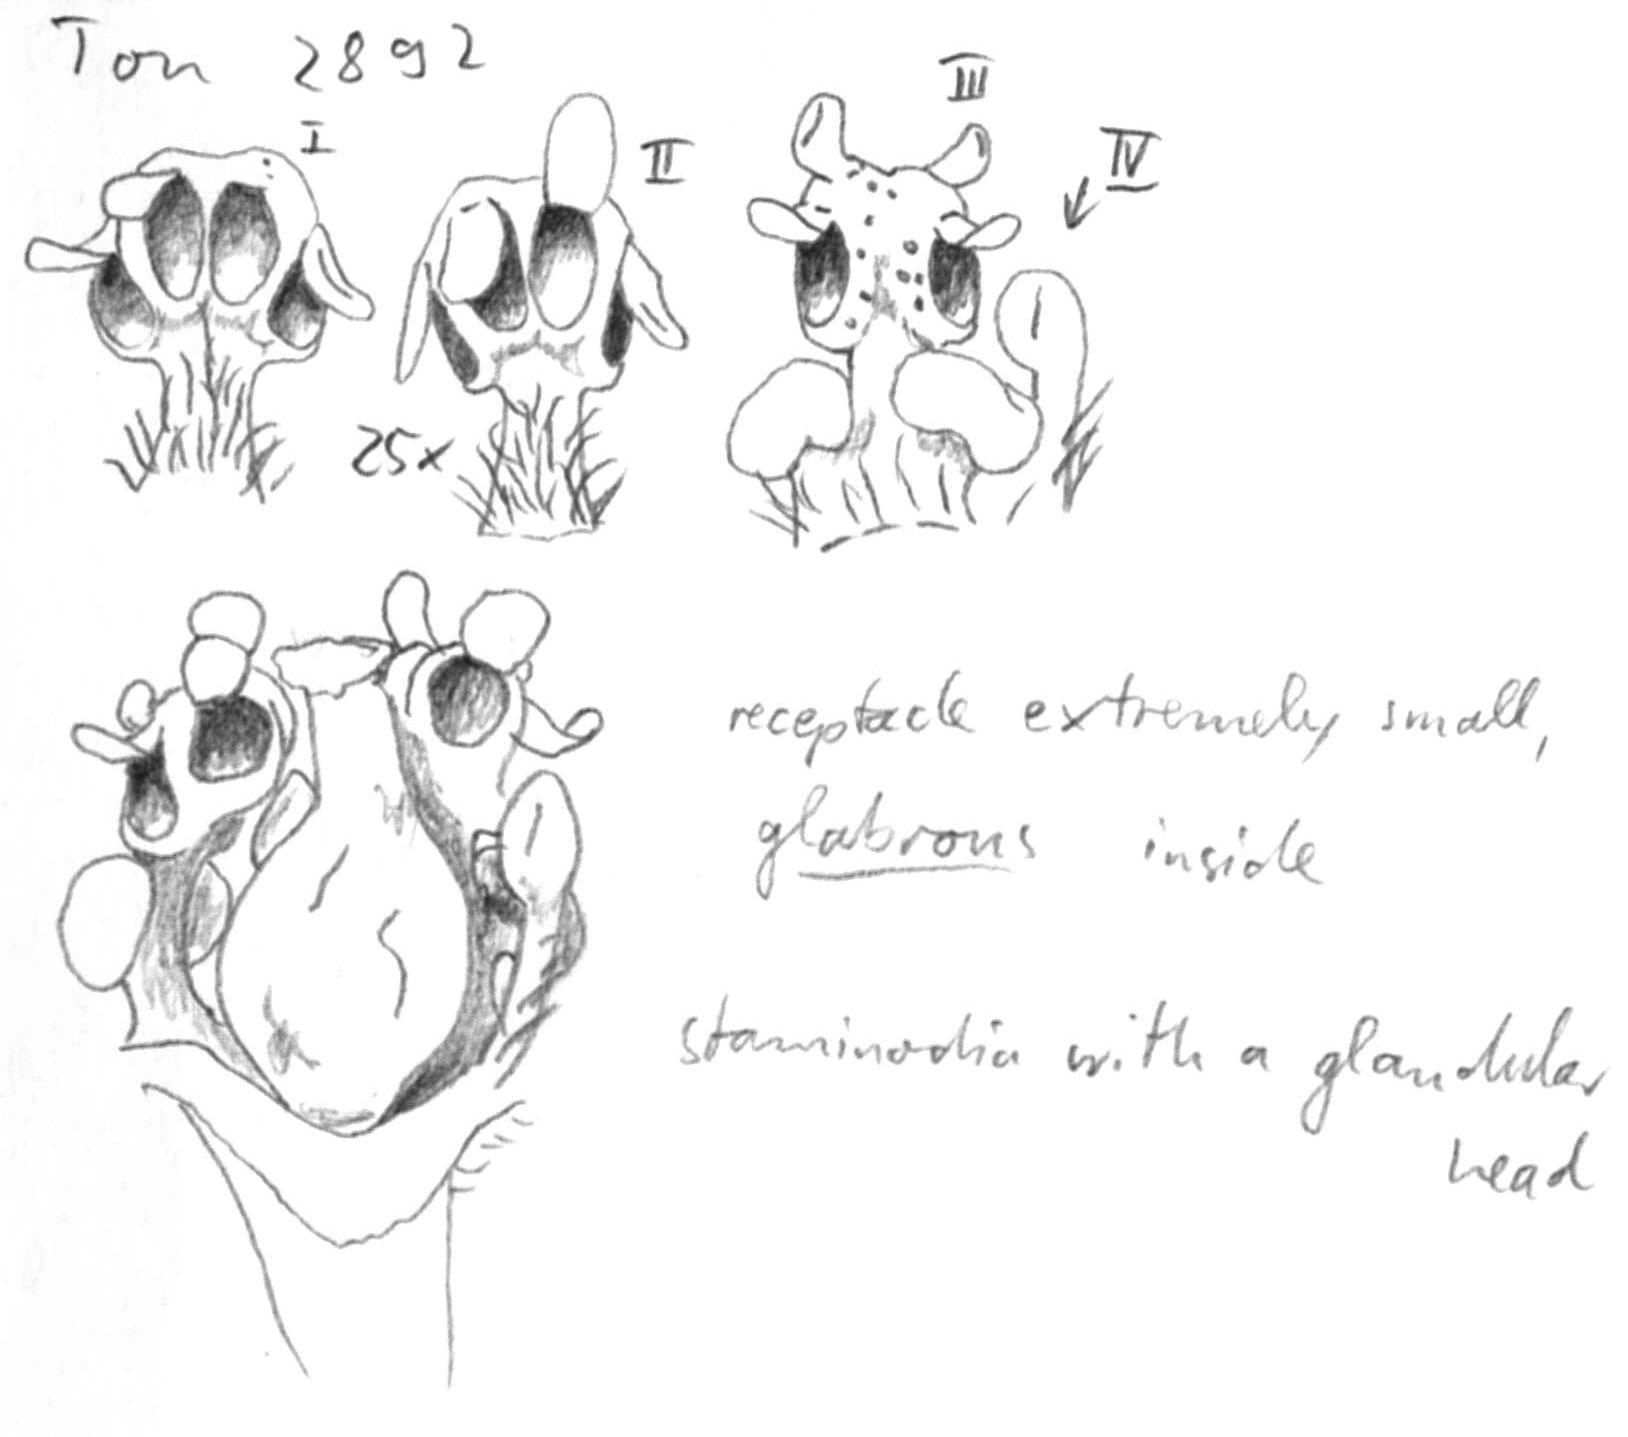 Ton 2892
I
II
III
IV
25x
receptacle extremely small,
glabrous inside
staminodia with a glandular
head